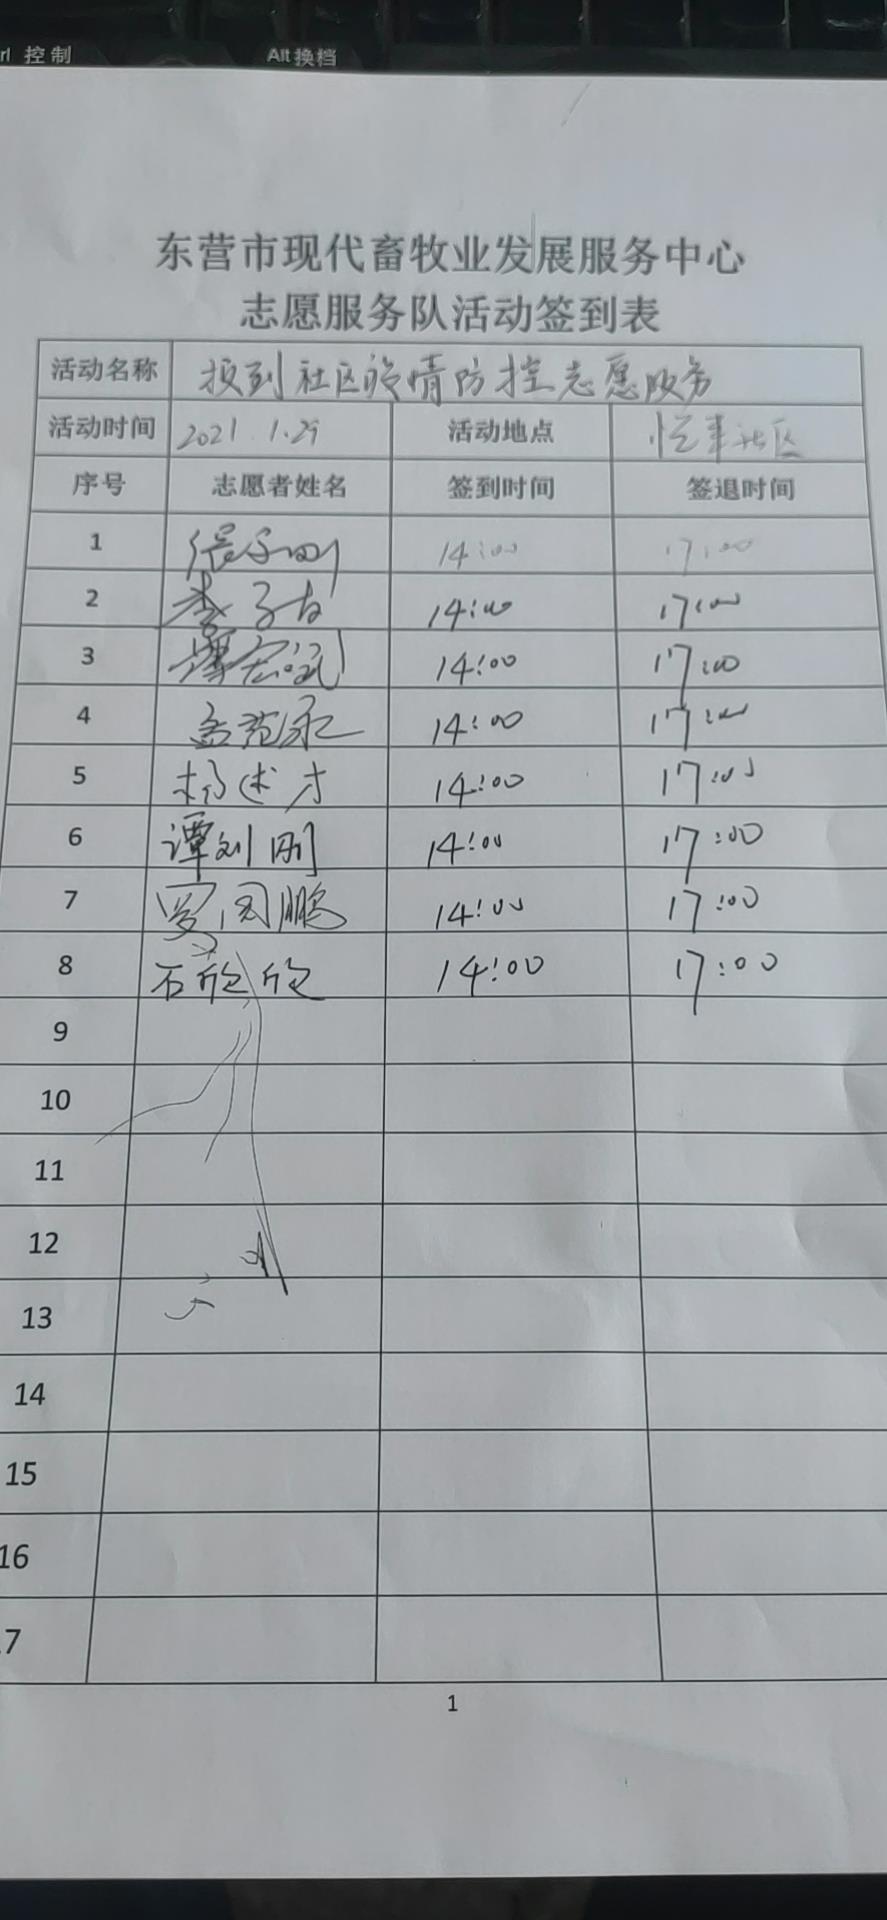 rl 控制 Alt 换档
东营市现代畜牧业发展服务中心
志愿服务队活动签到表
活动名称 报到社区疫情防控志愿服务
活动时间 2021.1.29 活动地点 社区
序号 志愿者姓名 签到时间 签退时间
1 张子刚 14:00 17:00
2 李子友 14:00 17:00
3 14:00 17:00
4 孟范永 14:00 17:00
5 杨述才 14:00 17:00
6 谭刘刚 14:00 17:00
7 罗国鹏 14:00 17:00
8 石欣欣 14:00 17:00
9
10
11
12
13
14
15
16
17
1